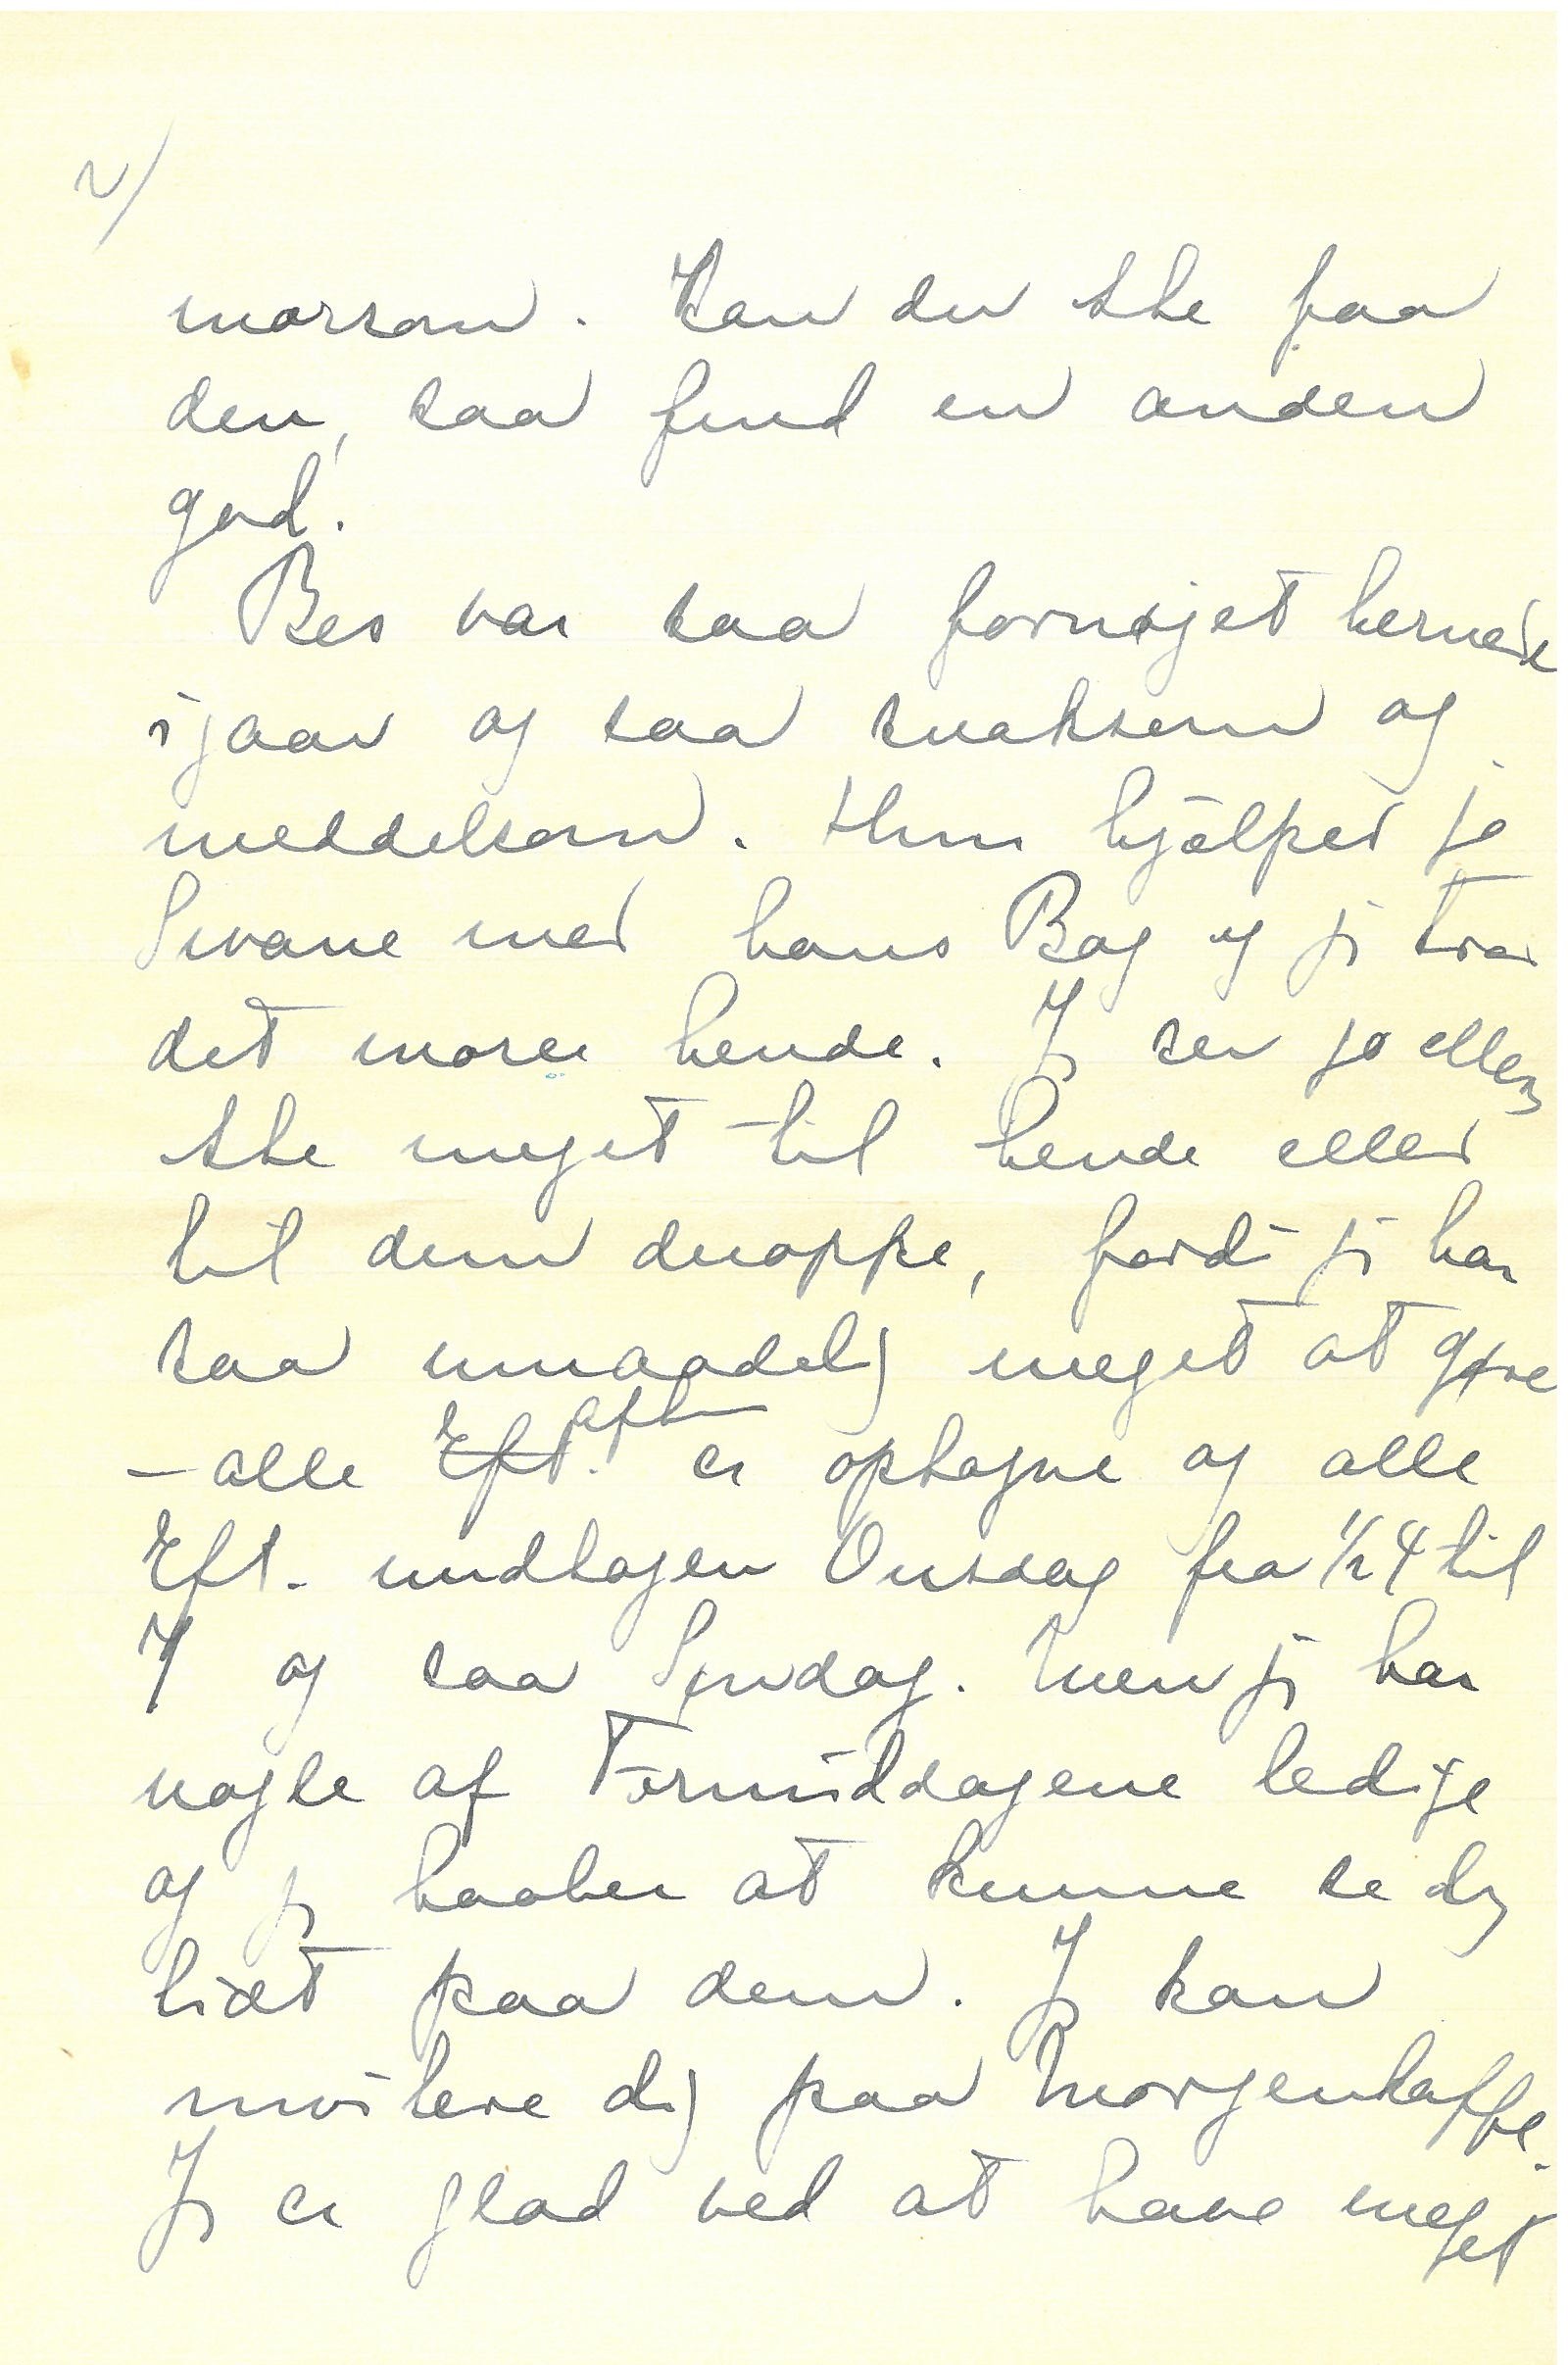 2/
morsom. Kan du ikke faa
den, saa find en anden
god.
Bes var saa fornøjet hernede
igaar og saa snaksom og
meddelsom. Hun hjælper jo
Swane med hans Bog og jeg tror
det morer hende. Jeg ser jo ellers
ikke meget til hende eller
til dem deroppe, fordi jeg har
saa umaadelig meget at gøre
– alle Eft. aftner er optagne og alle
Eft. undtagen Onsdag fra ½ 4 til
7 og saa Søndag. Men jeg har
nogle af Formiddagene ledige
og jeg haaber at kunne se dig
lidt paa dem. Jeg kan
invitere dig paa Morgenkaffe.
Jeg er glad ved at have meget